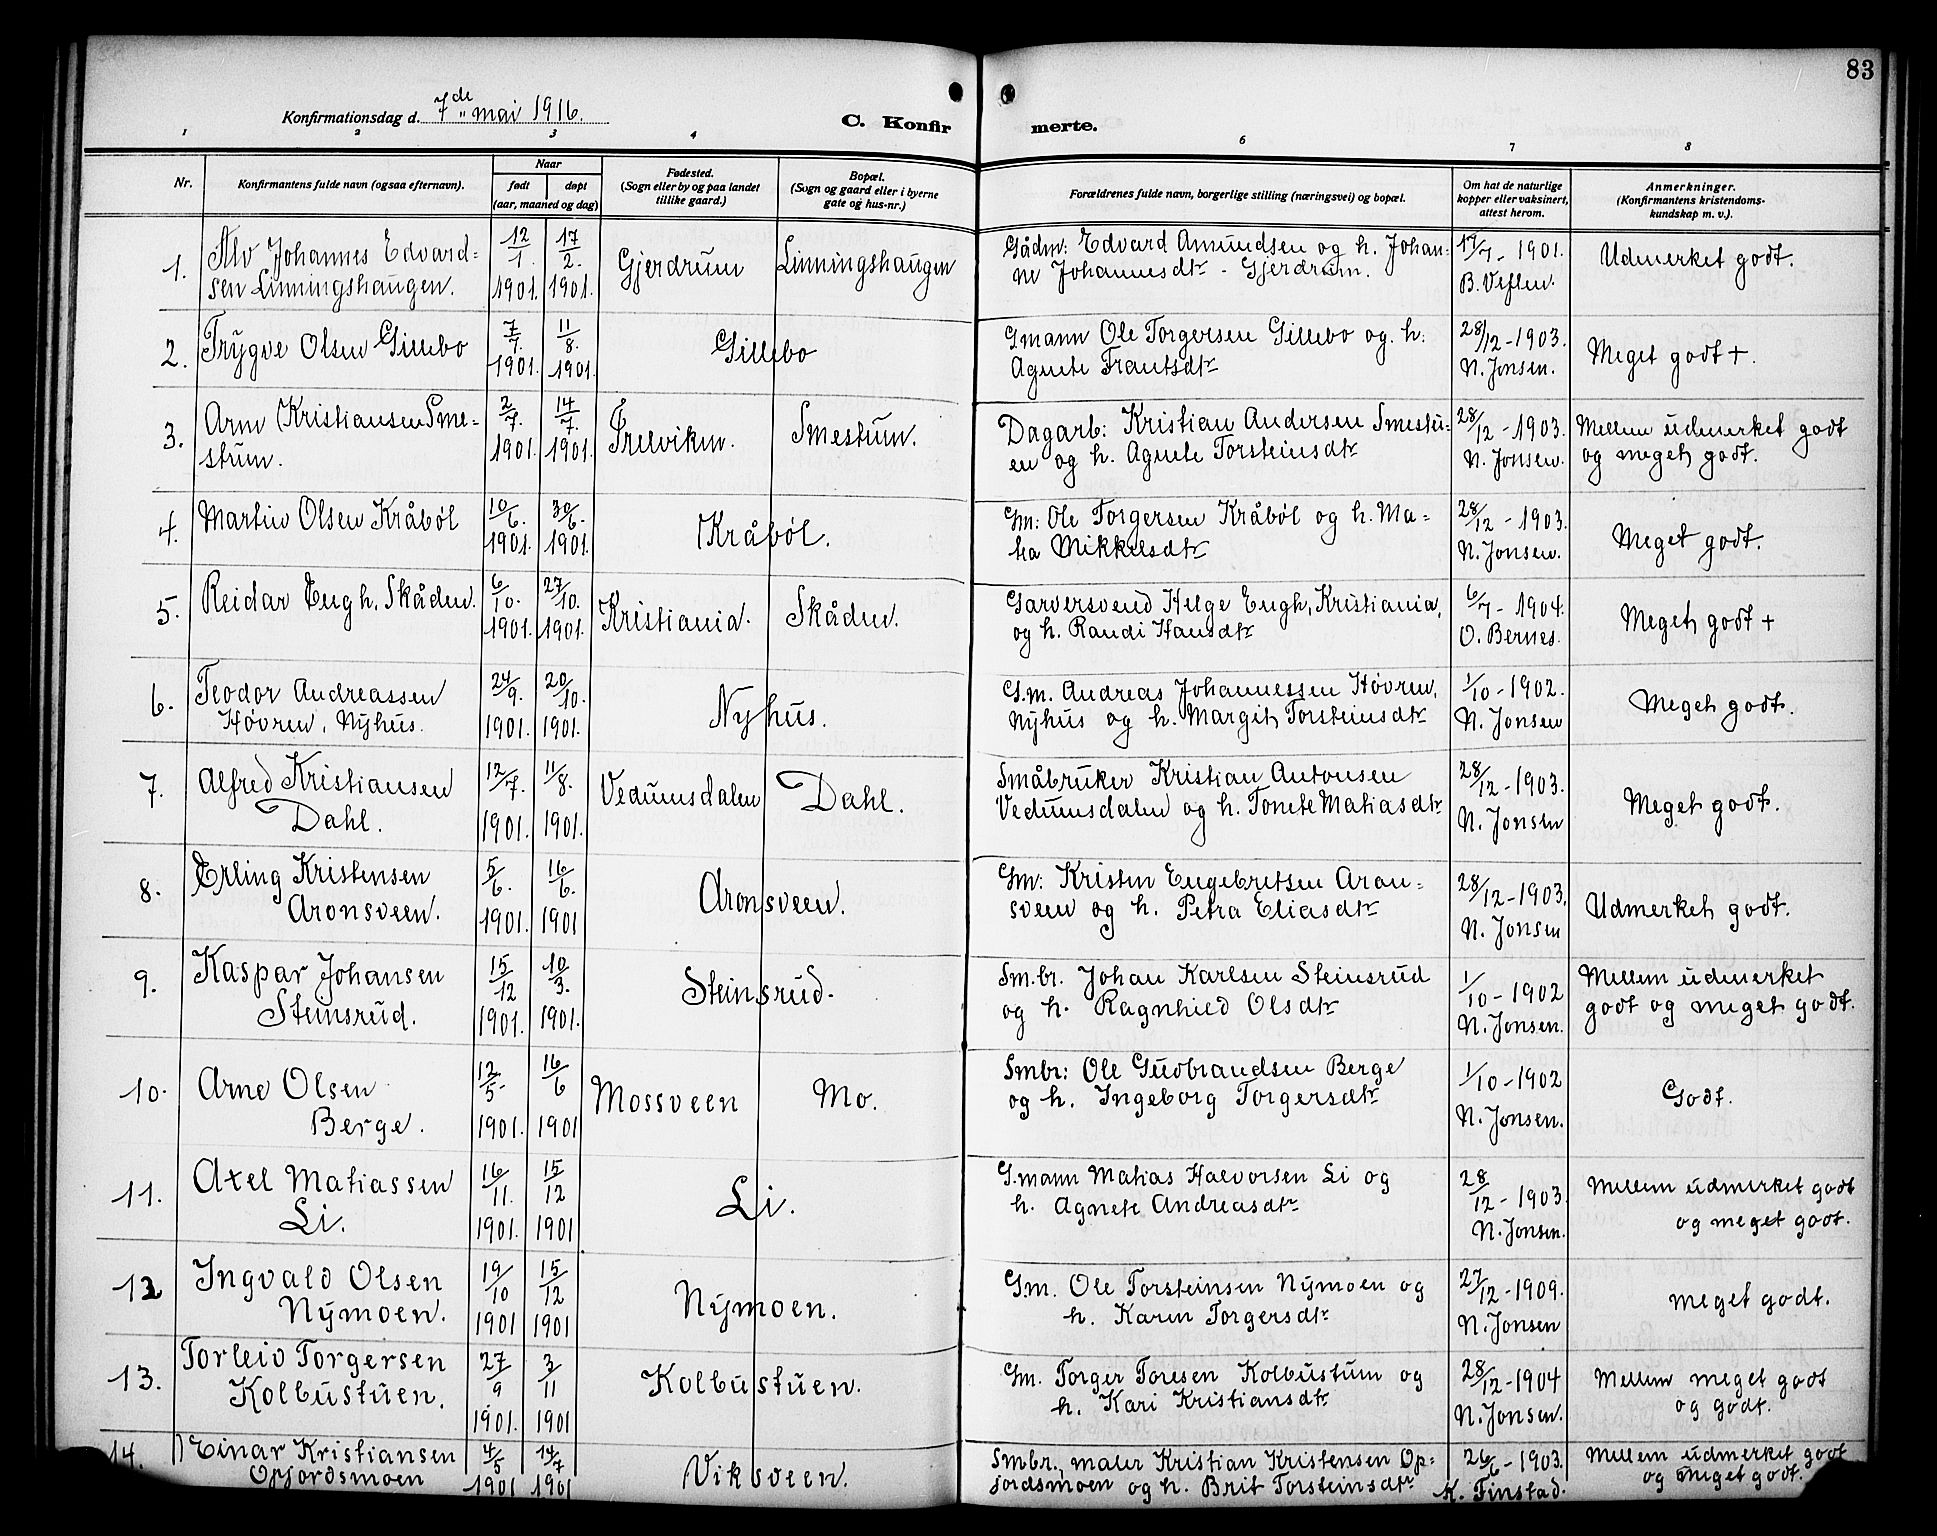 83
Konfirmationsdag d. 7de mai 1916.
C. Konfirmerte.
1 2 3 4 6 7 8
Nr.
Konfirmantens fulde navn (ogsaa efternavn).
Naar
født døpt
(aar, maaned og dag)
Fødested.
(Sogn eller by og paa landet
tillike gaard.)
Bopæl.
(Sogn og gaard eller i byerne
gate og hus-nr.)
Forældrenes fulde navn, borgerlige stilling (næringsvei) og bopæl.
Om hat de naturlige
kopper eller vaksinert,
attest herom.
Anmerkninger.
(Konfirmantens kristendoms-
kundskap m. v.).
1. Alv Johannes Edvard=
sen Linningshaugen.
12/1. 1901. 17/2. 1901.
Gjerdrum Linningshaugen
Gådm: Edvard Amundsen og h. Johan=
ne Johannesdtr - Gjerdrum.
17/7 - 1901.
B. Veflen.
Udmerket godt.
2. Trygve Olsen Gillebo
7/7. 1901. 11/8. 1901.
Gillebo
Gmann Ole Torgersen Gillebo og. h.
Agnete Frantsdtr
28/12 - 1903.
N. Jonsen.
Meget godt +.
3. Arne Kristiansen Sme=
stuen.
2/7. 1901. 14/7. 1901.
Smestuen.
Dagarb: Kristian Andersen Smestu=
en og h. Agnete Torsteinsdtr
28/12 - 1903.
N. Jonsen.
Mellem udmerket godt
og meget godt.
4. Martin Olsen Kråbøl
10/6. 1901. 30/6. 1901.
Kråbøl.
Gm: Ole Torgersen Kråbøl og h. Ma=
ha Mikkelsdtr
28/12 - 1903.
N. Jonsen.
Meget godt.
5. Reidar Engh, Skåden.
6/10. 1901. 27/10. 1901.
Kristiania. Skåden.
Garversvend Helge Engh, Kristiania,
og h. Randi Hansdtr
6/7 - 1904.
O. Bernes.
Meget godt +
6. Teodor Andreassen
Høvren, Nyhus.
24/9. 1901. 20/10. 1901.
Nyhus.
G.m. Andreas Johannessen Høvren,
Nyhus og h. Margit Torsteinsdtr
1/10 - 1902.
N. Jonsen
Meget godt.
7. Alfred Kristiansen
Dahl.
12/7. 1901. 11/8. 1901.
Vedumsdalen Dahl.
Småbruker Kristian Antonsen
Vedumsdalen og h. Tonete Matiasdtr
28/12 - 1903.
N. Jonsen
Meget godt.
8. Erling Kristensen
Aronsveen.
5/6. 1901. 16/6. 1901
Aronsveen.
Gm: Kristen Engebretsen Aron=
sveen og h. Petra Eliasdtr
28/12 - 1903.
N. Jonsen
Udmerket godt.
9. Kaspar Johansen
Steinsrud.
15/12 1901. 10/3. 1901.
Steinsrud.
Sm.br. Johan Karlsen Steinsrud
og h. Ragnhild Olsdtr
1/10 - 1902
N. Jonsen.
Mellem udmerket
godt og meget godt.
10. Arne Olsen
Berge.
12/5. 1901. 16/6 1901
Mossveen Mo.
Smbr: Ole Gudbrandsen Berge
og h. Ingeborg Torgersdtr
1/10 - 1902
N. Jonsen.
Godt.
11. Axel Matiassen
Li.
16/11. 1901. 15/12 1901
Li.
G.mann Matias Halvorsen Li og
h. Agnete Andreasdtr
28/12 - 1903
N. Jonsen.
Mellem udmerket godt
og meget godt.
12 Ingvald Olsen
Nymoen.
19/10 1901 15/12 1901
Nymoen.
Gm. Ole Torsteinsen Nymoen og
h. Karen Torgersdtr
27/12 - 1909.
N. Jonsen
meget godt.
13. Torleiv Torgersen
Kolbustuen.
27/9 1901. 3/11 1901
Kolbustuen.
Gm. Torger Toresen Kolbustuen og
h. Kari Kristiansdtr
28/12 - 1904
N. Jonsen.
Mellem meget godt
og godt.
14. Einar Kristiansen
Opjordsmoen
4/5 1901 14/7 1901
Viksveen.
Smbr., maler Kristian Kristensen Op=
jordsmoen og h. Brit Torsteinsdtr
26/6 - 1903.
K. Finstad.
Mellem udmerket godt
og meget godt.